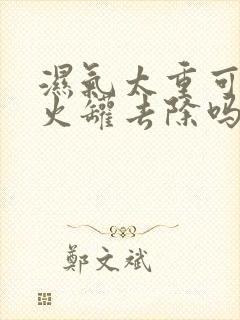 濕氣太重可
火罐去除吗
鄭文斌